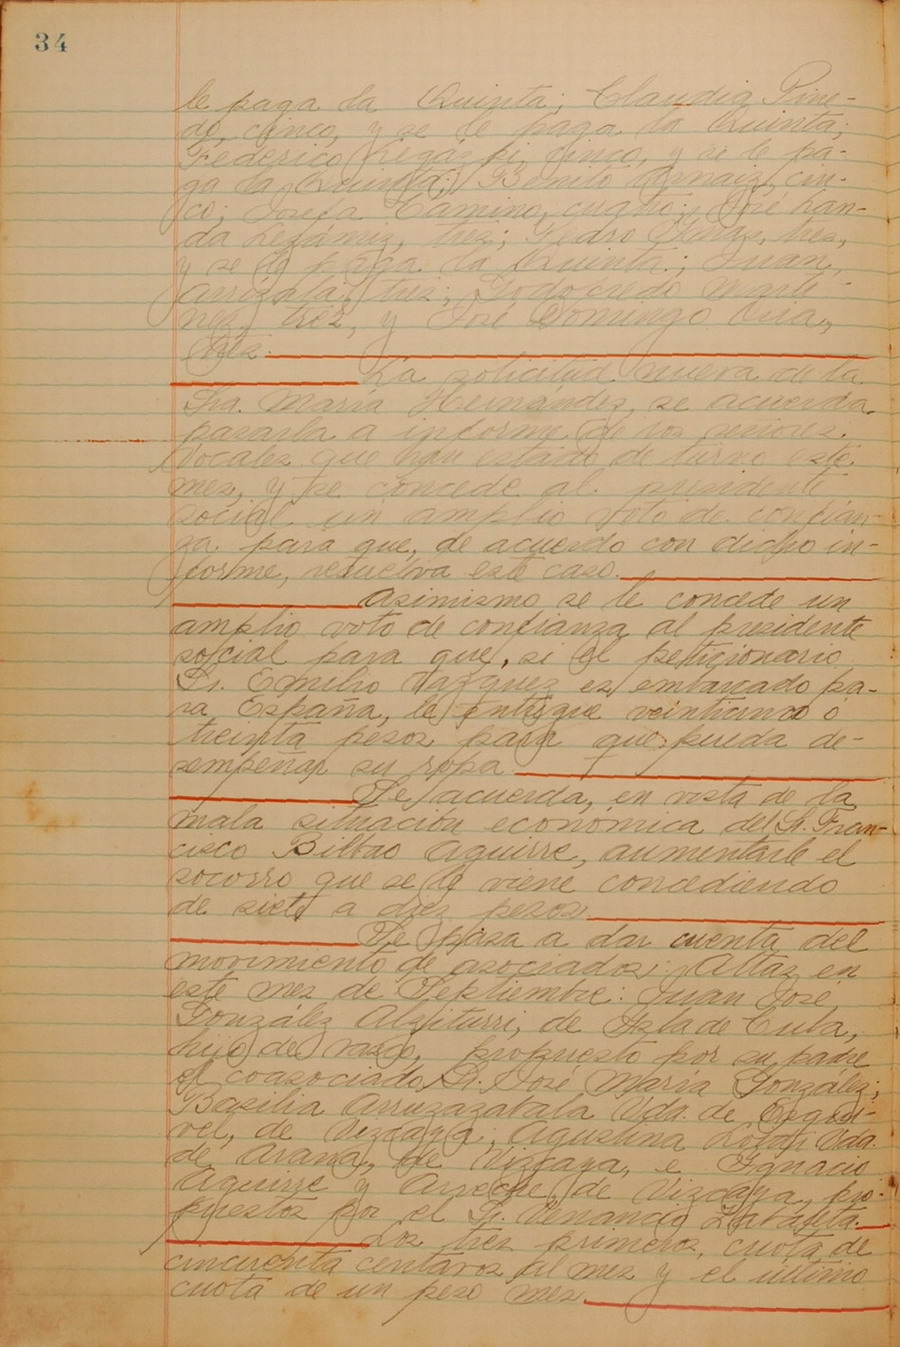 34
le paga la Quinta; Claudia Pine-
do, cinco, y se le paga la Quinta;
Federico Legázpi, cinco, y se le pa-
ga la Quinta; Benito Arnaiz, cin-
co; Josefa Camino, cuatro; José Lan-
da Lezámiz, tres; Pedro tres,
y se le paga la Quinta; Juan
Arrizala, tres; Godocredo Martí-
nez, tres, y José Domingo
tres.
La solicitud nueva de la
Sra. María Hernández, se acuerda
pasarla a informe de los señores
Vocales que han estado de turno este
mes, y se concede al presidente
social un amplio voto de confian-
za para que, de acuerdo con dicho in-
forme, resuelva este caso.
Asimismo se le concede un
amplio voto de confianza al presidente
social para que, si el peticionario
Sr. Emilio Vazquez es embarcado pa-
ra España, le entregue veinticinco ó
treinta pesos para que pueda de-
sempeñar su ropa
Se acuerda, en vista de la
mala situación económica del Sr. Fran-
cisco Bilbao Aguirre, aumentarle el
socorro que se le viene concediendo
de siete a diez pesos
Se pasa a dar cuenta del
movimiento de asociados: Altas en
este mes de Septiembre: Juan José
González Alzíturri, de Isla de Cuba,
hijo de vasco, propuesto por su padre
el coasociado Sr. José María González;
Basilia Arruzazabala Vda. de Esquí-
vel, de Vizcaya; Agustina Vda.
de Arana, de Vizcaya, e Ignacio
Aguirre y Arreche, de Vizcaya, pro-
puestos por el Sr. Venancio Zabaleta.
Los tres primeros, cuota de
cincuenta centavos al mes y el último
cuota de un peso mes